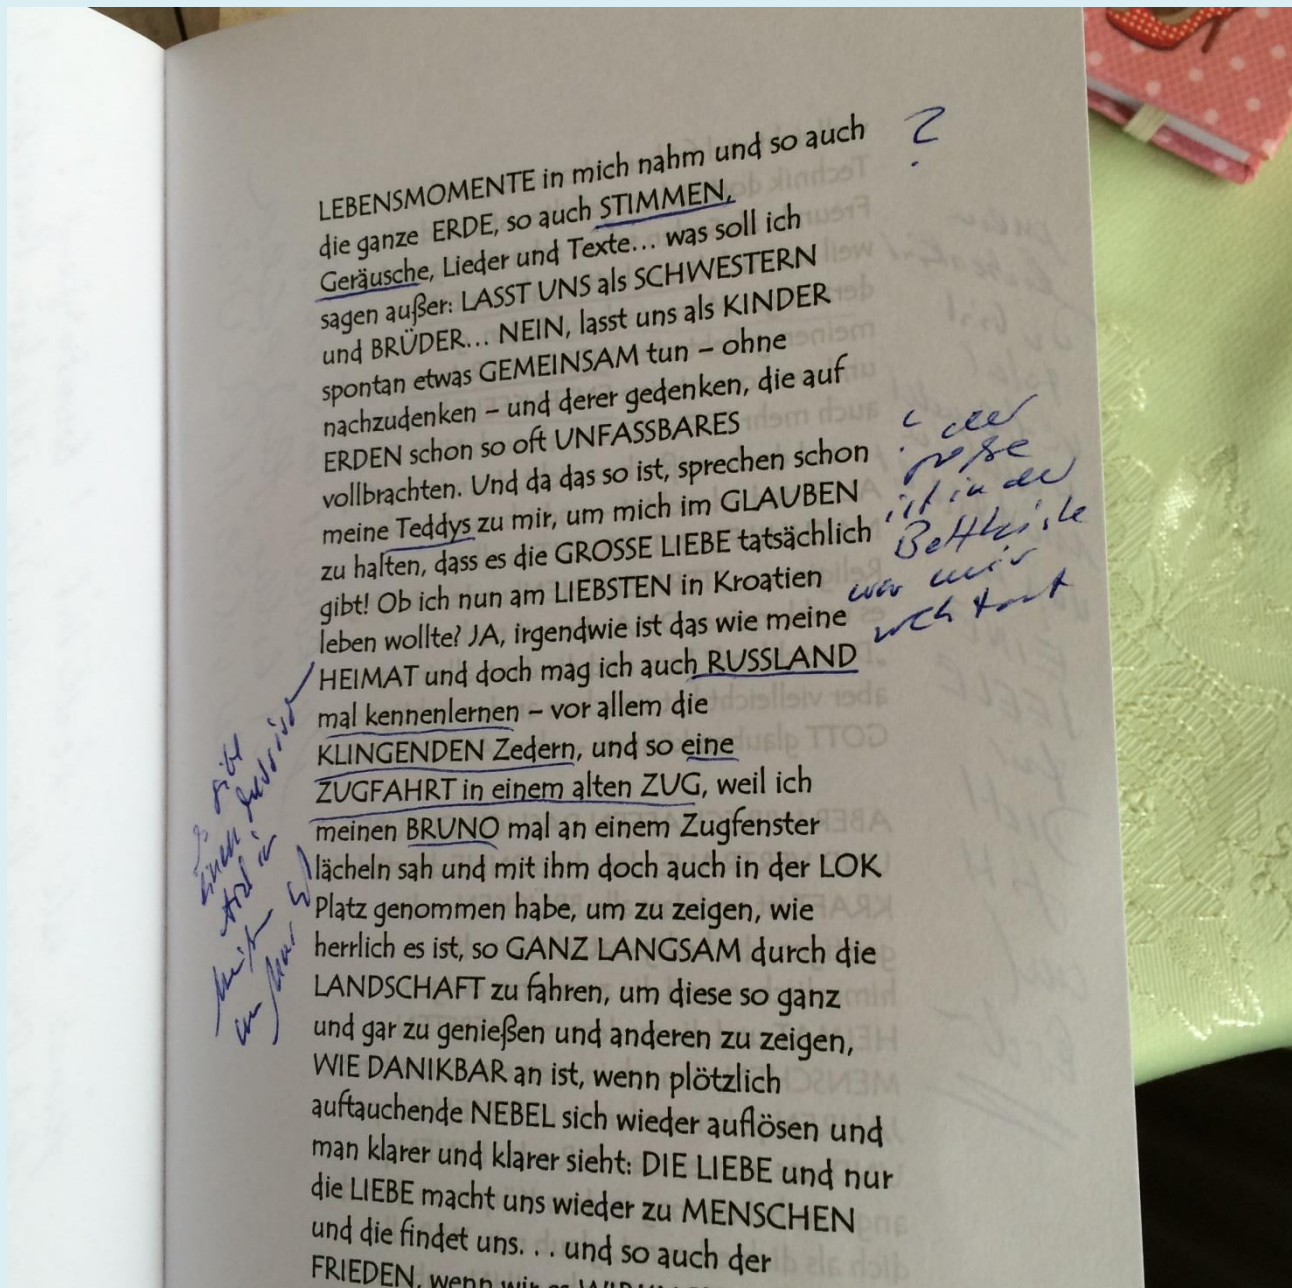 LEBENSMOMENTE in mich nahm und so auch
die ganze ERDE, so auch STIMMEN,
Geräusche, Lieder und Texte... was soll ich
sagen außer: LASST UNS als SCHWESTERN
und BRÜDER... NEIN, lasst uns als KINDER
spontan etwas GEMEINSAM tun – ohne
nachzudenken – und derer gedenken, die auf
ERDEN schon so oft UNFASSBARES
vollbrachten. Und da das so ist, sprechen schon
meine Teddys zu mir, um mich im GLAUBEN
zu halten, dass es die GROSSE LIEBE tatsächlich
gibt! Ob ich nun am LIEBSTEN in Kroatien
leben wollte? JA, irgendwie ist das wie meine
HEIMAT und doch mag ich auch RUSSLAND
mal kennenlernen – vor allem die
KLINGENDEN Zedern, und so eine
ZUGFAHRT in einem alten ZUG, weil ich
meinen BRUNO mal an einem Zugfenster
lächeln sah und mit ihm doch auch in der LOK
Platz genommen habe, um zu zeigen, wie
herrlich es ist, so GANZ LANGSAM durch die
LANDSCHAFT zu fahren, um diese so ganz
und gar zu genießen und anderen zu zeigen,
WIE DANIKBAR an ist, wenn plötzlich
auftauchende NEBEL sich wieder auflösen und
man klarer und klarer sieht: DIE LIEBE und nur
die LIEBE macht uns wieder zu MENSCHEN
und die findet uns. . . und so auch der
FRIEDEN, wenn wir es
?
der
große
ist in der
Bettkiste
war mir